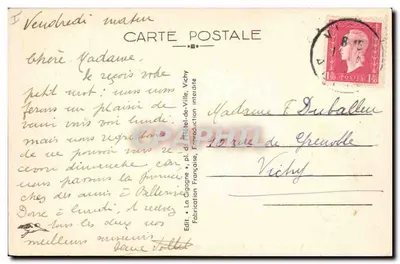 Vendredi matin
CARTE POSTALE
Chère Madame,
Je reçois votre
petit mot : nous nous
ferons un plaisir de
venir vous voir lundi
mais nous regrettons
de ne pouvoir vous re-
cevoir dimanche car
nous passons la journée
chez des amis à Bellerive
Donc à lundi,
tous les deux nos
meilleurs souvenirs
Edit. "La Cigogne" pl. de l'Hôtel-de-Ville, Vichy
Fabrication Française, Reproduction interdite
Madame F Duballen
12 rue de Grenoble
Vichy